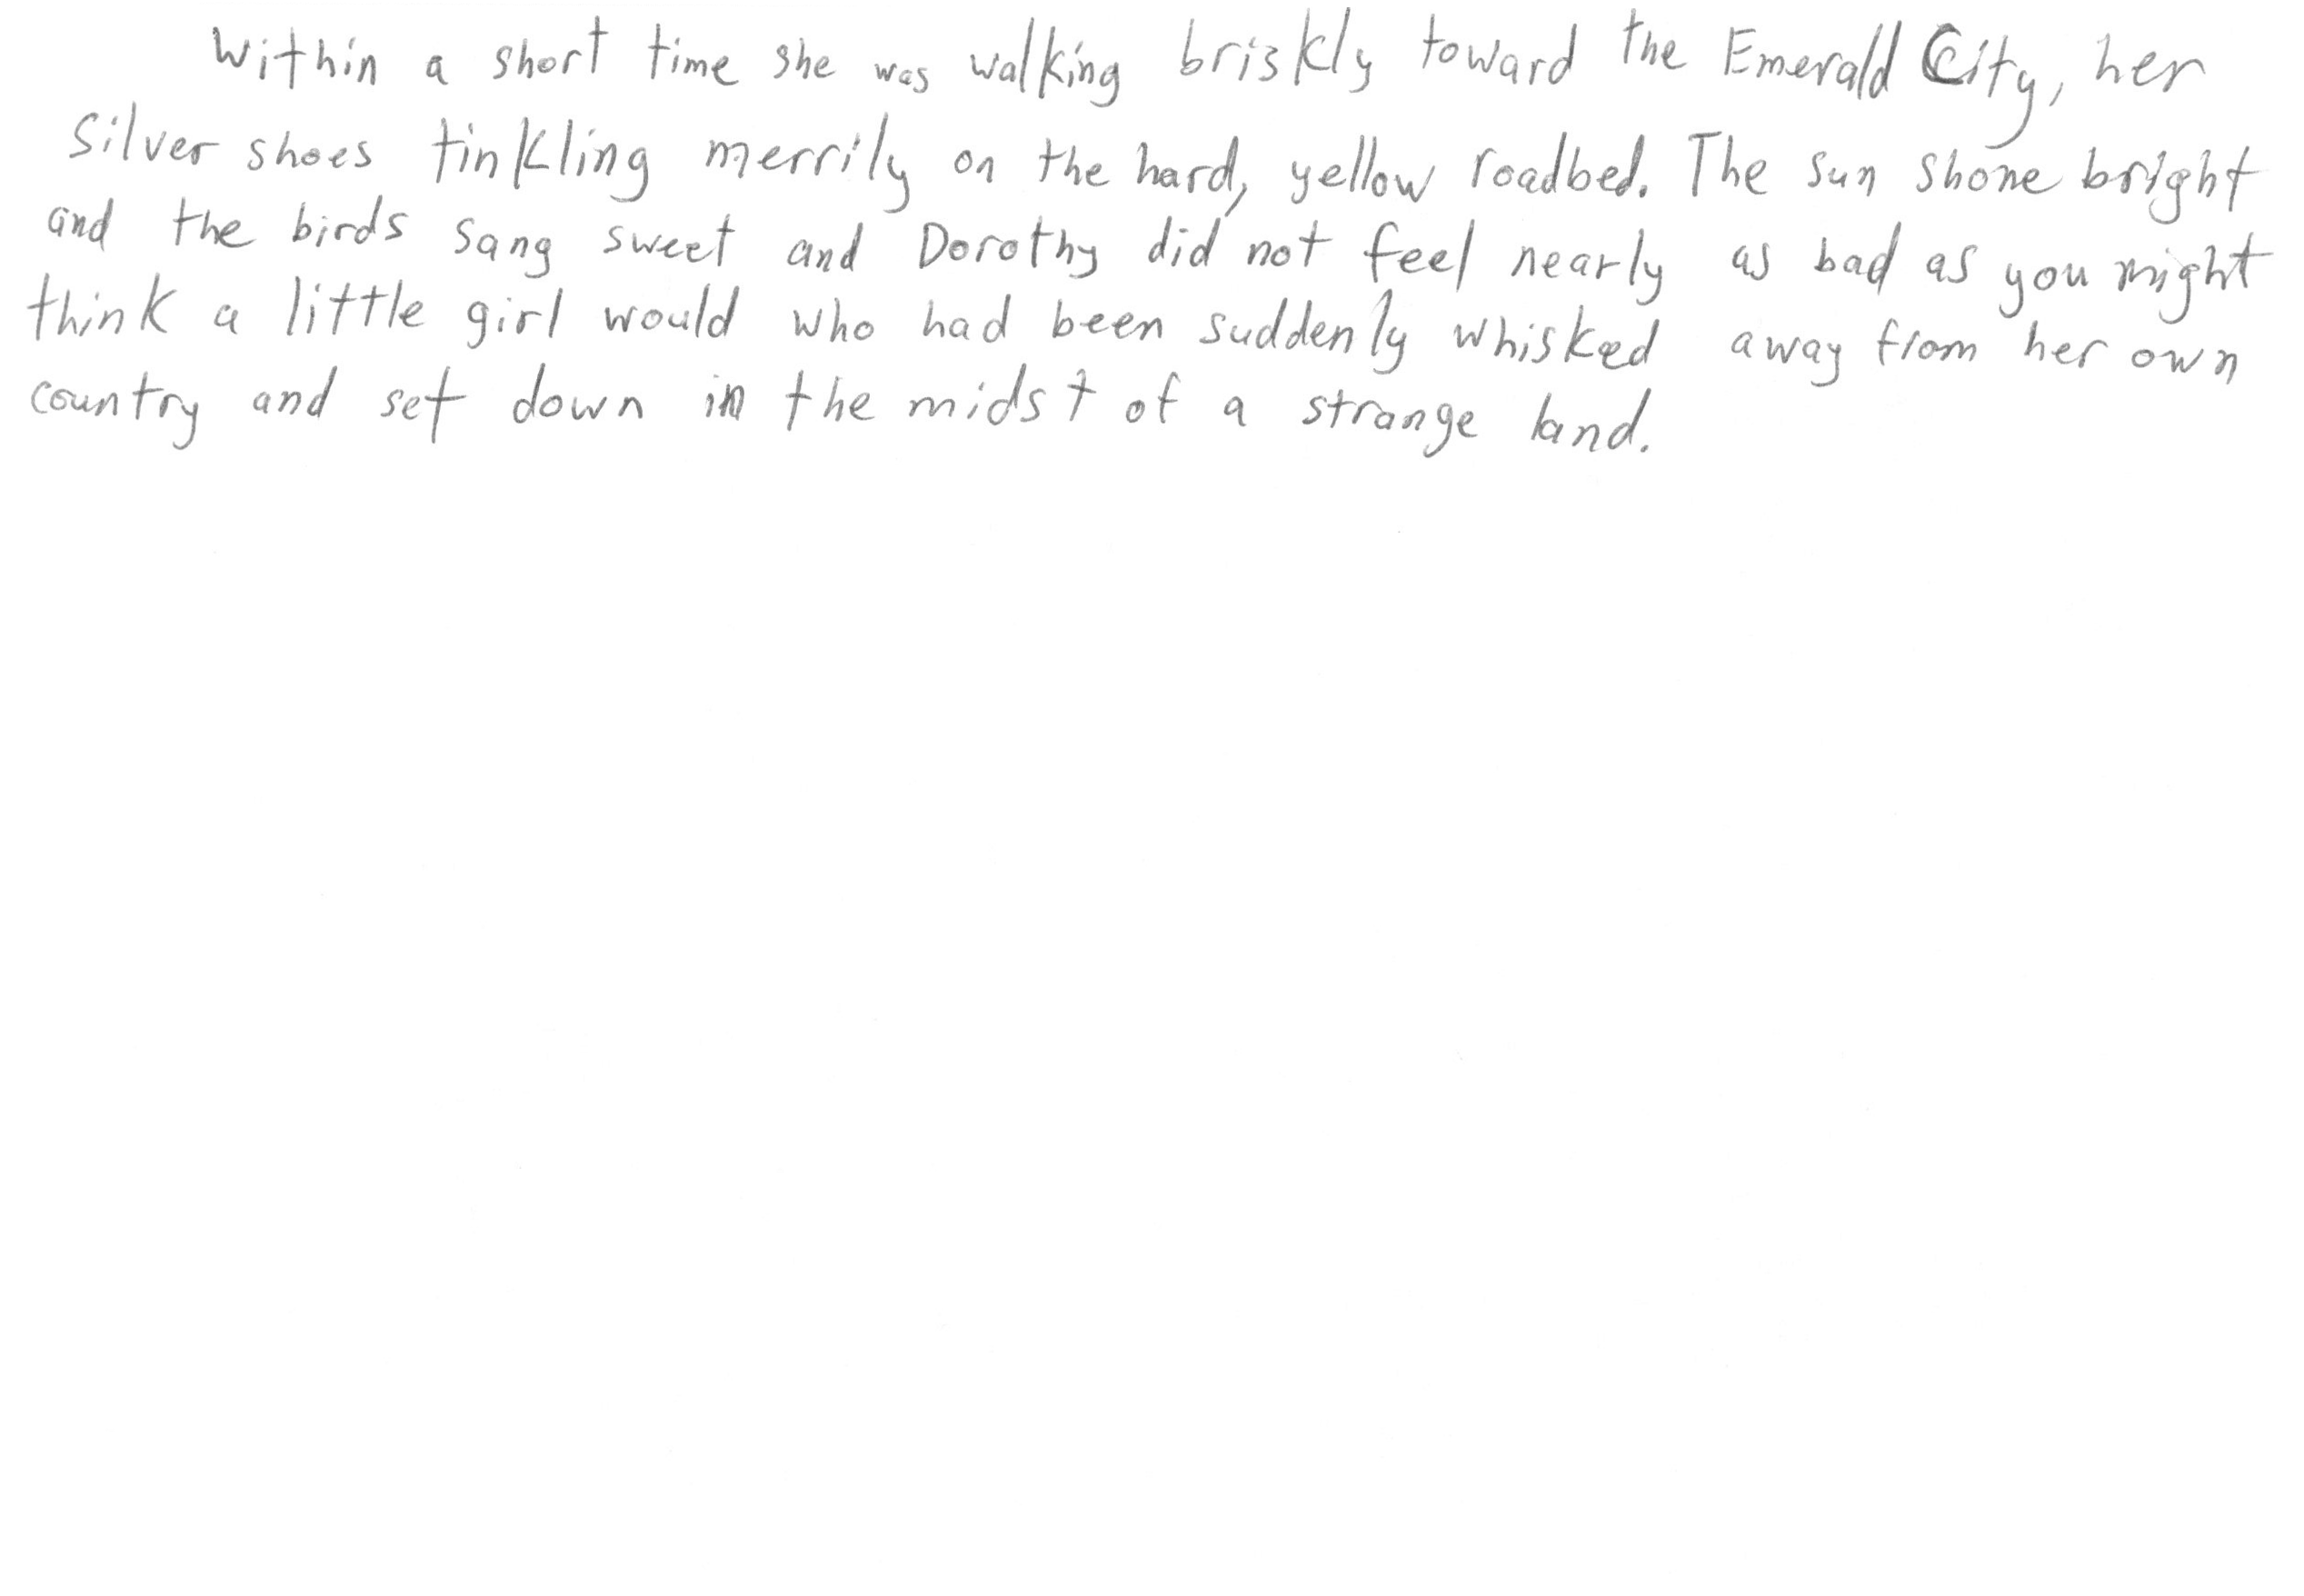 Within a short time she was walking briskly toward the Emerald City, her
Silver shoes tinkling merrily on the hard, yellow roadbed. The sun shone bright
and the birds sang sweet and Dorothy did not feel nearly as bad as you might
think a little girl would who had been suddenly whisked away from her own
country and set down in the midst of a strange land.